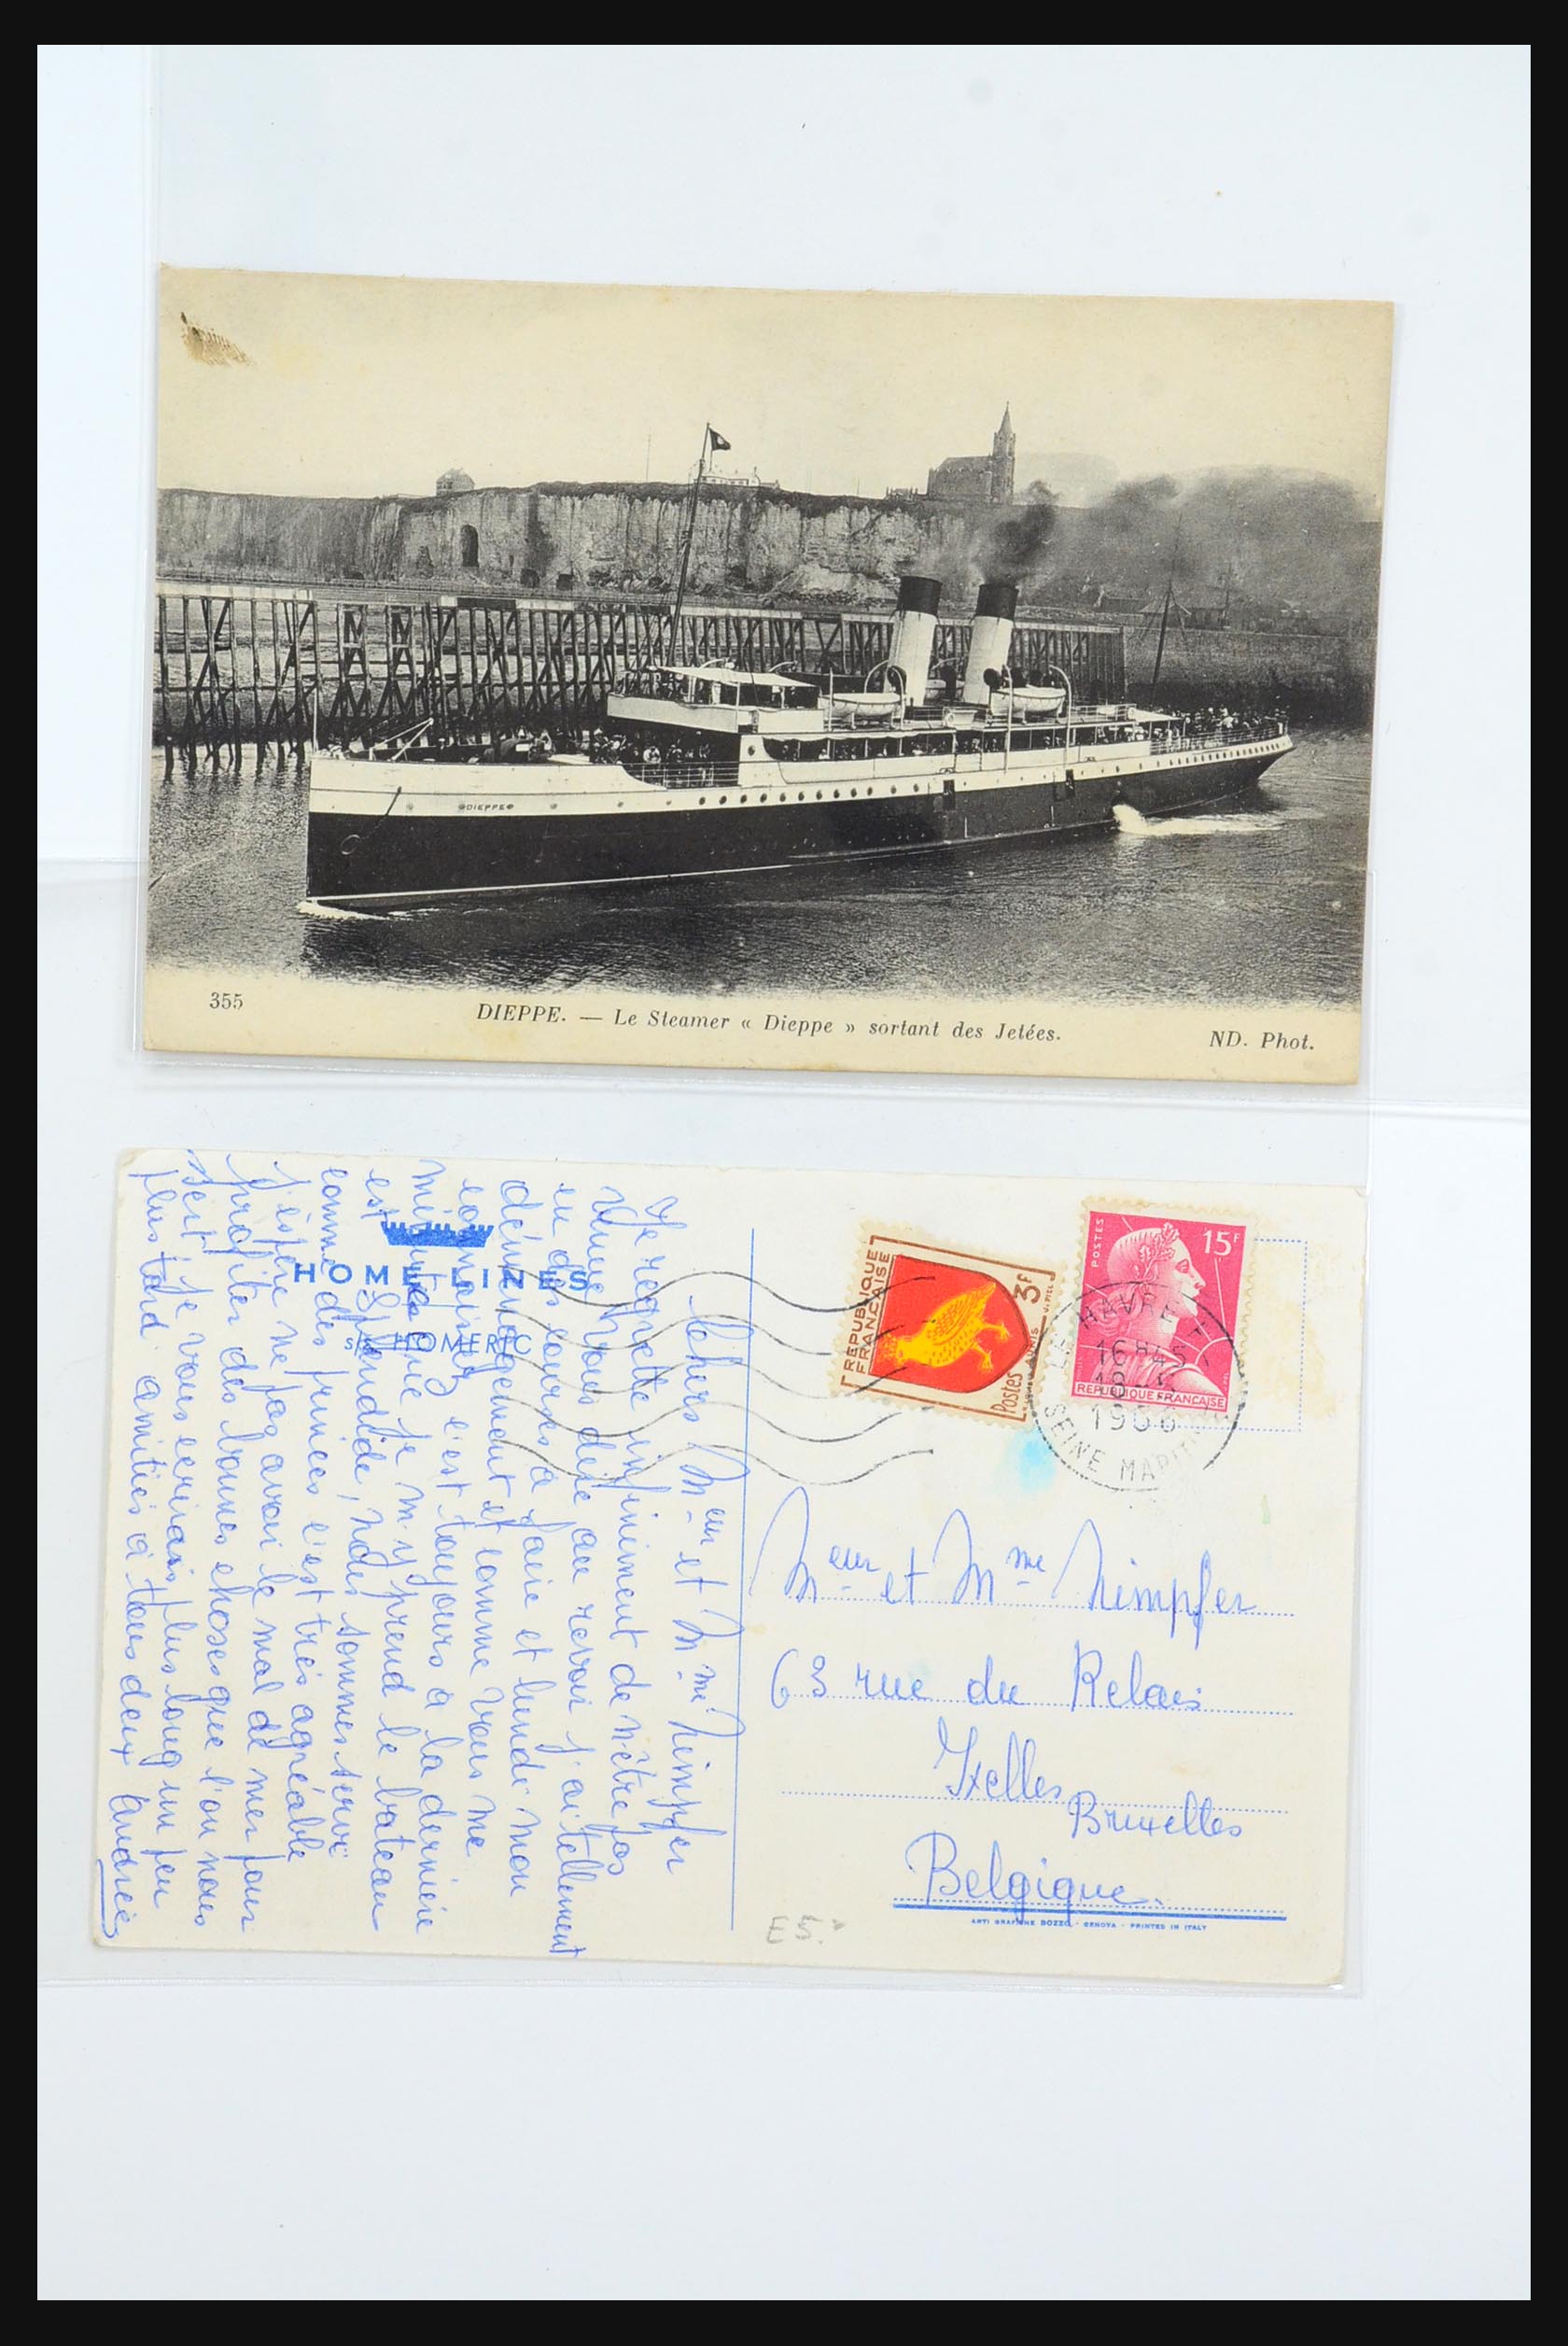 DIEPPE
355
DIEPPE. — Le Steamer « Dieppe » sortant des Jetées.
ND. Phot.
HOME LINES
s/s HOMERIC
Chers Meur et Mme Nimpfer
Je regrette infiniment de n'être pas
venue vous dire au revoir j'ai tellement
eu des courses à faire et lundi mon
déménagement et comme vous me
connaissez c'est toujours à la dernière
minute que je m'y prend le bateau
est splendide, nous sommes servi
comme des princes c'est très agréable
j'espère ne pas avoir le mal de mer pour
profiter des bonnes choses que l'on nous
sert je vous ecrirais plus long un peu
plus tard amitiés à tous deux Andrée
REPUBLIQUE
FRANÇAISE
3F
Postes
POSTES
15F
REPUBLIQUE FRANÇAISE
LE HAVRE
16H45
1956
SEINE MARITIME
Meur et Mme Nimpfer
63 rue du Relais
Ixelles
Bruxelles
Belgique
ARTI GRAFICHE BOZZO - GENOVA - PRINTED IN ITALY
E5.-